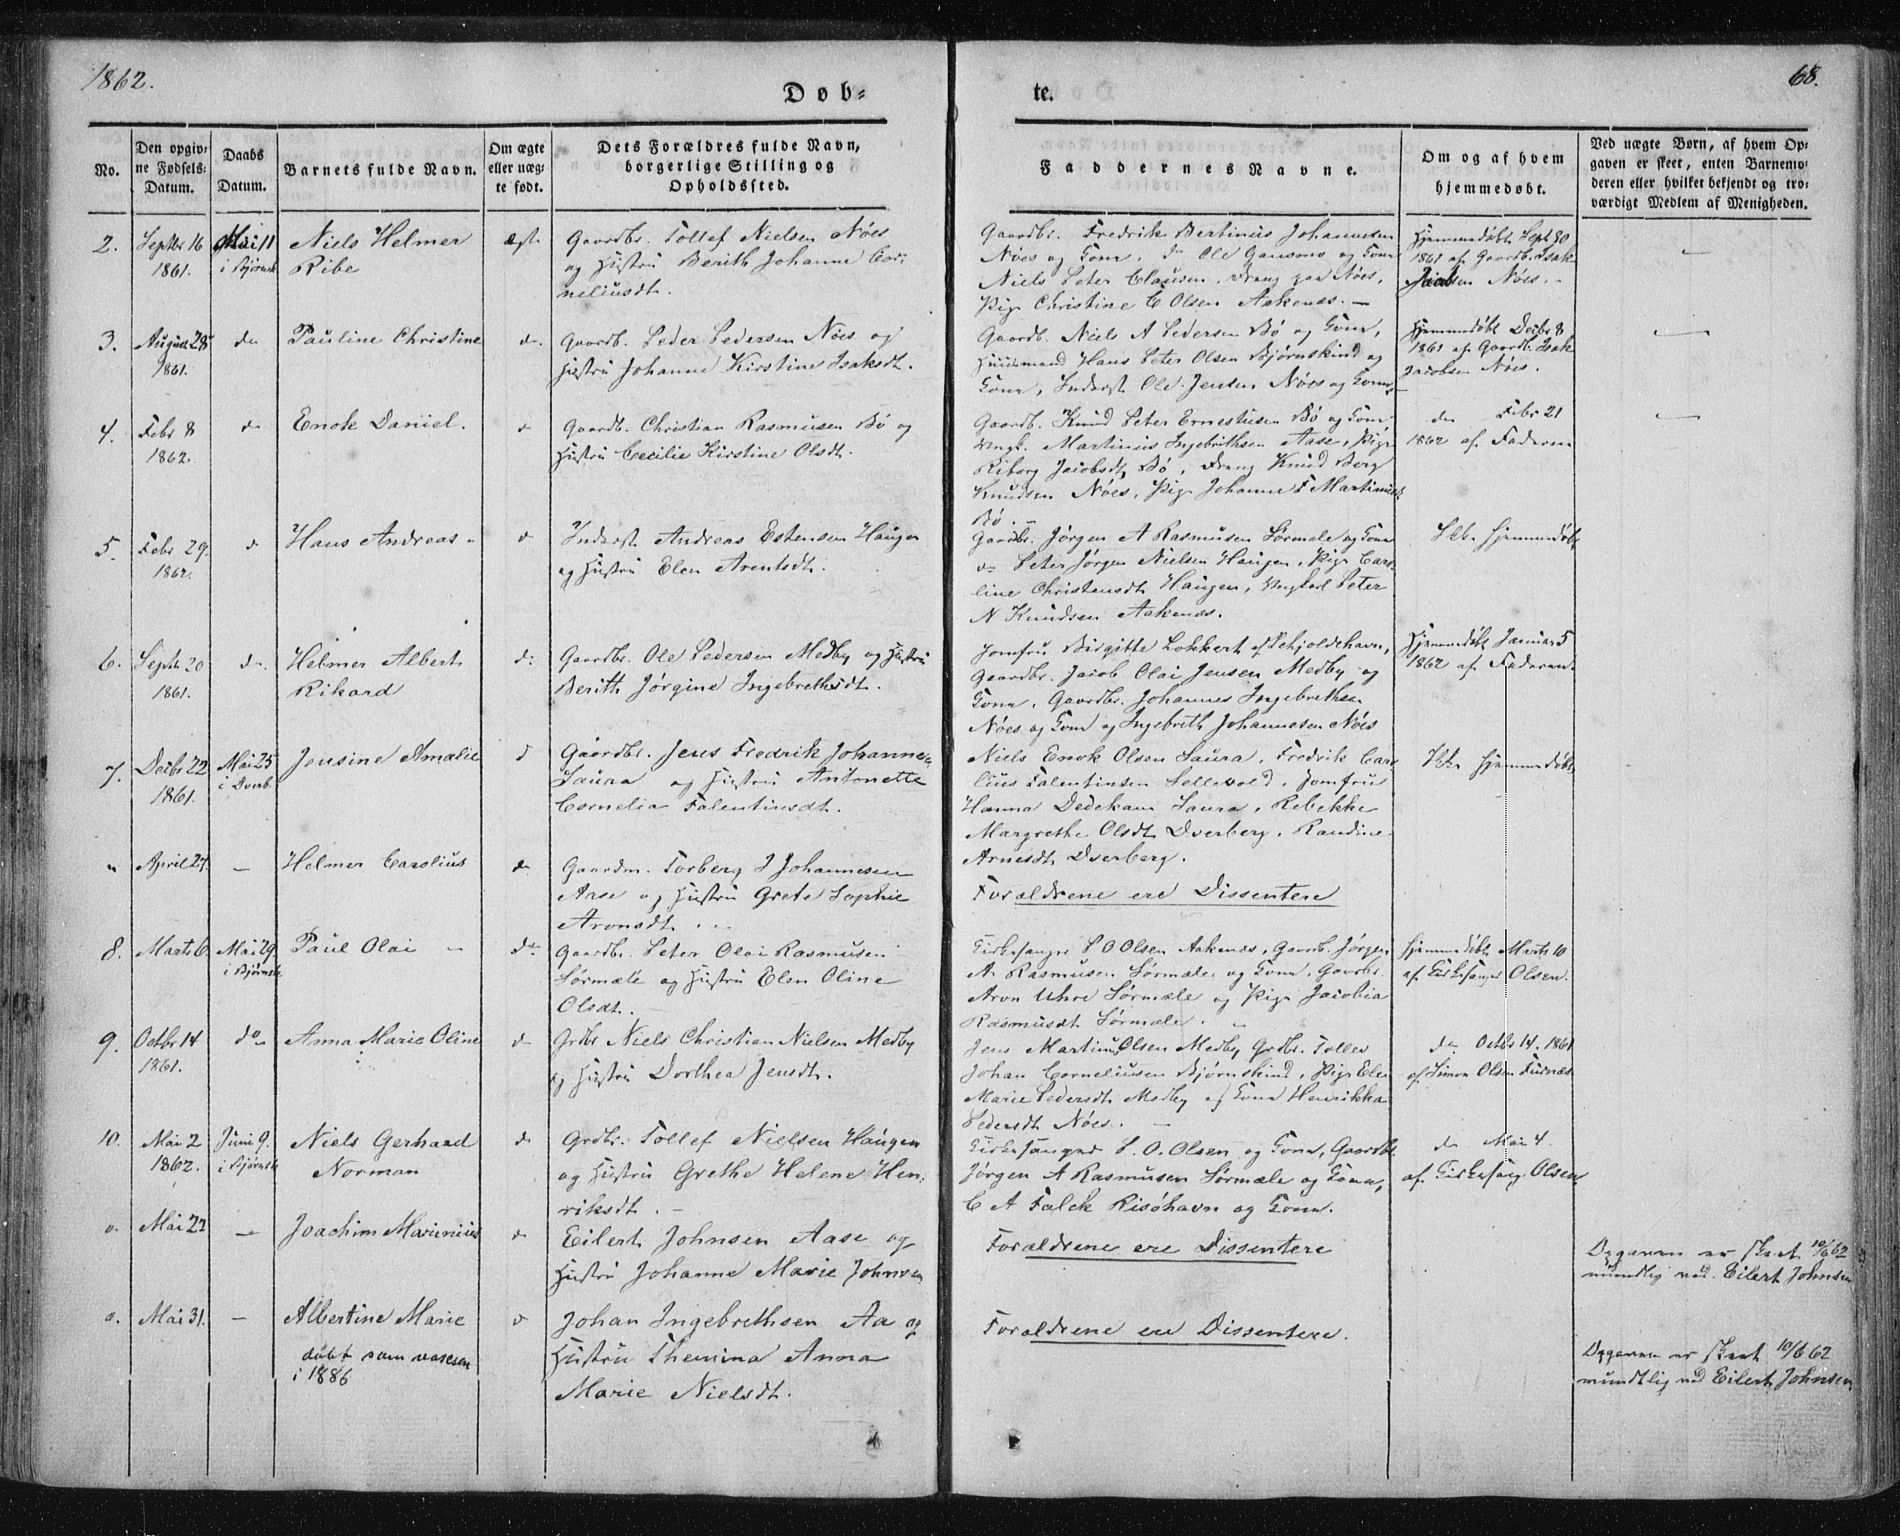 1862.
68.
Døb-
te.
No.
Den opgiv-
ne Fødsels-
Datum.
Daabs
Datum.
Barnets fulde Navn.
Om ægte
eller uæg-
te født.
Dets Forældres fulde Navn,
borgerlige Stilling og
Opholdssted.
Faddernes Navne.
Om og af hvem
hjemmedøbt.
Ved uægte Børn, af hvem Op-
gaven er skeet, enten Barnemo-
deren eller hvilket bekjendt og tro-
værdigt Medlem af Menigheden.
2.
Septbr 16
1861.
Mai 11
i Bjørnsk
Niels Helmer
Ribe
ægte
Gaardbr. Tollef Nielsen Nøes
og Hustru Berith Johanne Cor-
neliusdt.
Gaardbr. Fredrik Bertinus Johannesen
Nøes og Kone, do Ole Gausmo og Kone
Niels Peter Clausen, Dreng paa Nøes,
Pige Christine C Olsen Aakenæs. —
Hjemmedøbt Sept 30
1861 af Gaardb. Isak
Jacobsen Nøes.
—
3.
August 28
1861.
do
Pauline Christine
do.
Gaardb. Peder Pedersen Nøes og
Hustru Johanne Kirstine Isaksdt.
Gaardb. Niels A Pedersen Bø og Kone,
Huusmand Hans Peter Olsen Bjørnskind og
Kone, Inderst Ole Jensen Nøes og Kone
Hjemmedøbt Decbr 8
1861 af Gaardb. Isak
Jacobsen Nøes.
—
4.
Febr 8
1862.
do
Enok Daniel.
do
Gaardb. Christian Rasmusen Bø og
Hustru Cecilie Kirstine Olsdt.
Gaardb. Knud Peter Ernestusen Bø og Kone,
Ungk. Martinus Ingebrithsen Aase, Pige
Riborg Jacobsdt Bø, Dreng Knud Berg
Knudsen Nøes, Pige Johanne F Martinusdt
Bø. —
do Febr 21
1862 af Faderen
—
5.
Febr 29.
1862.
do
Hans Andreas -
do
Inderst Andreas Estensen Haugen
og Hustru Elen Arentsdt.
Gaardbr. Jørgen A Rasmusen Sørmele og Kone
do Peter Jørgen Nielsen Haugen, Pige Caro-
line Christensdt Haugen, Ungkarl Peter
N Knudsen Aakenæs.
Ikke hjemmedøbt
6.
Septbr 20
1861.
do.
Helmer Albert
Rikard
do
Gaardbr. Ole Pedersen Medby og Hustru
Berith Jørgine Ingebrethsdt.
Jomfru Birgitte Lokkert af Skjoldehavn,
Gaardbr. Jacob Olai Jensen Medby og
Kone, Gaardbr. Johannes Ingebrethsen
Nøes og Kone og Ingebrith Johannesen Nøes
Hjemmedøbt Januar 5
1862 af Faderen
7.
Decbr 22
1861.
Mai 25
i Dverb.
Jensine Amalie
do
Gaardbr. Jens Fredrik Johannesen
Saura og Hustru Antonette
Cornelia Falentinsdt.
Niels Enok Olsen Saura, Fredrik Car-
lius Falentinsen Sellevold, Jomfru
Hanna Dedekam Saura, Rebekke
Margrethe Olsdt Dverberg, Randine
Arnesdt Dverberg.
Ikke hjemmedøbt
"
April 27.
—
Helmer Carolius
do
Gaardm. Torberg I Johannesen
Aase og Hustru Grete Sophie
Aronsdt
Forældrene ere Dissentere
8.
Marts 6
Mai 29.
i Bjørnsk
Paul Olai
do
Gaardbr. Peter Olai Rasmusen
Sørmele og Hustru Elen Oline
Olsdt.
Kirkesanger P O Olsen Aakenæs, Gaardb. Jørgen
A. Rasmusen Sørmæle og Kone, Gaardbr.
Aron Uhre Sørmæle og Pige Jacobia
Rasmusdt Sørmæle.
Hjemmedøbt Marts 10
af Kirkesanger Olsen.
9.
Octbr 14
1861.
do
Anna Marie Oline
do
Grdbr Niels Christian Nielsen Medby
og Hustru Dorthea Jensdt.
Jens Martinus Olsen Medby, Grdbr. Tollev
Johan Corneliusen Bjørnskind, Pige Elen
Marie Pedersdt Medby og Kone Henrikka
Pedersdt Nøes. —
do Octbr 14. 1861
af Simon Olsen Furnæs
10.
Mai 2
1862.
Juni 9.
i Bjørnsk
Niels Gerhard
Norman
do
Grdbr. Tollef Nielsen Haugen
og Hustru Grethe Helene Hen-
riksdt. —
Kirkesanger P. O. Olsen og Kone, Gaardbr.
Jørgen A Rasmusen Sørmæle og Kone,
C A Falck Risøhavn og Kone.
do Mai 4.
af Kirkesang. Olsen
o.
Mai 22
—
Joachim Marinius
do
Eilert Johnsen Aase og
Hustru Johanne Marie Johnsen
Forældrene ere Dissentere
Opgaven er skeet 10/6 62
mundtlig ved Eilert Johnsen
o.
Mai 31.
—
Albertine Marie
døbt som voksen
i 1886
do
Johan Ingebrethsen Aa og
Hustru Themina Anna
Marie Nielsdt.
Forældrene ere Dissentere.
Opgaven er skeet 10/6 62
mundtlig ved Eilert Johnsen